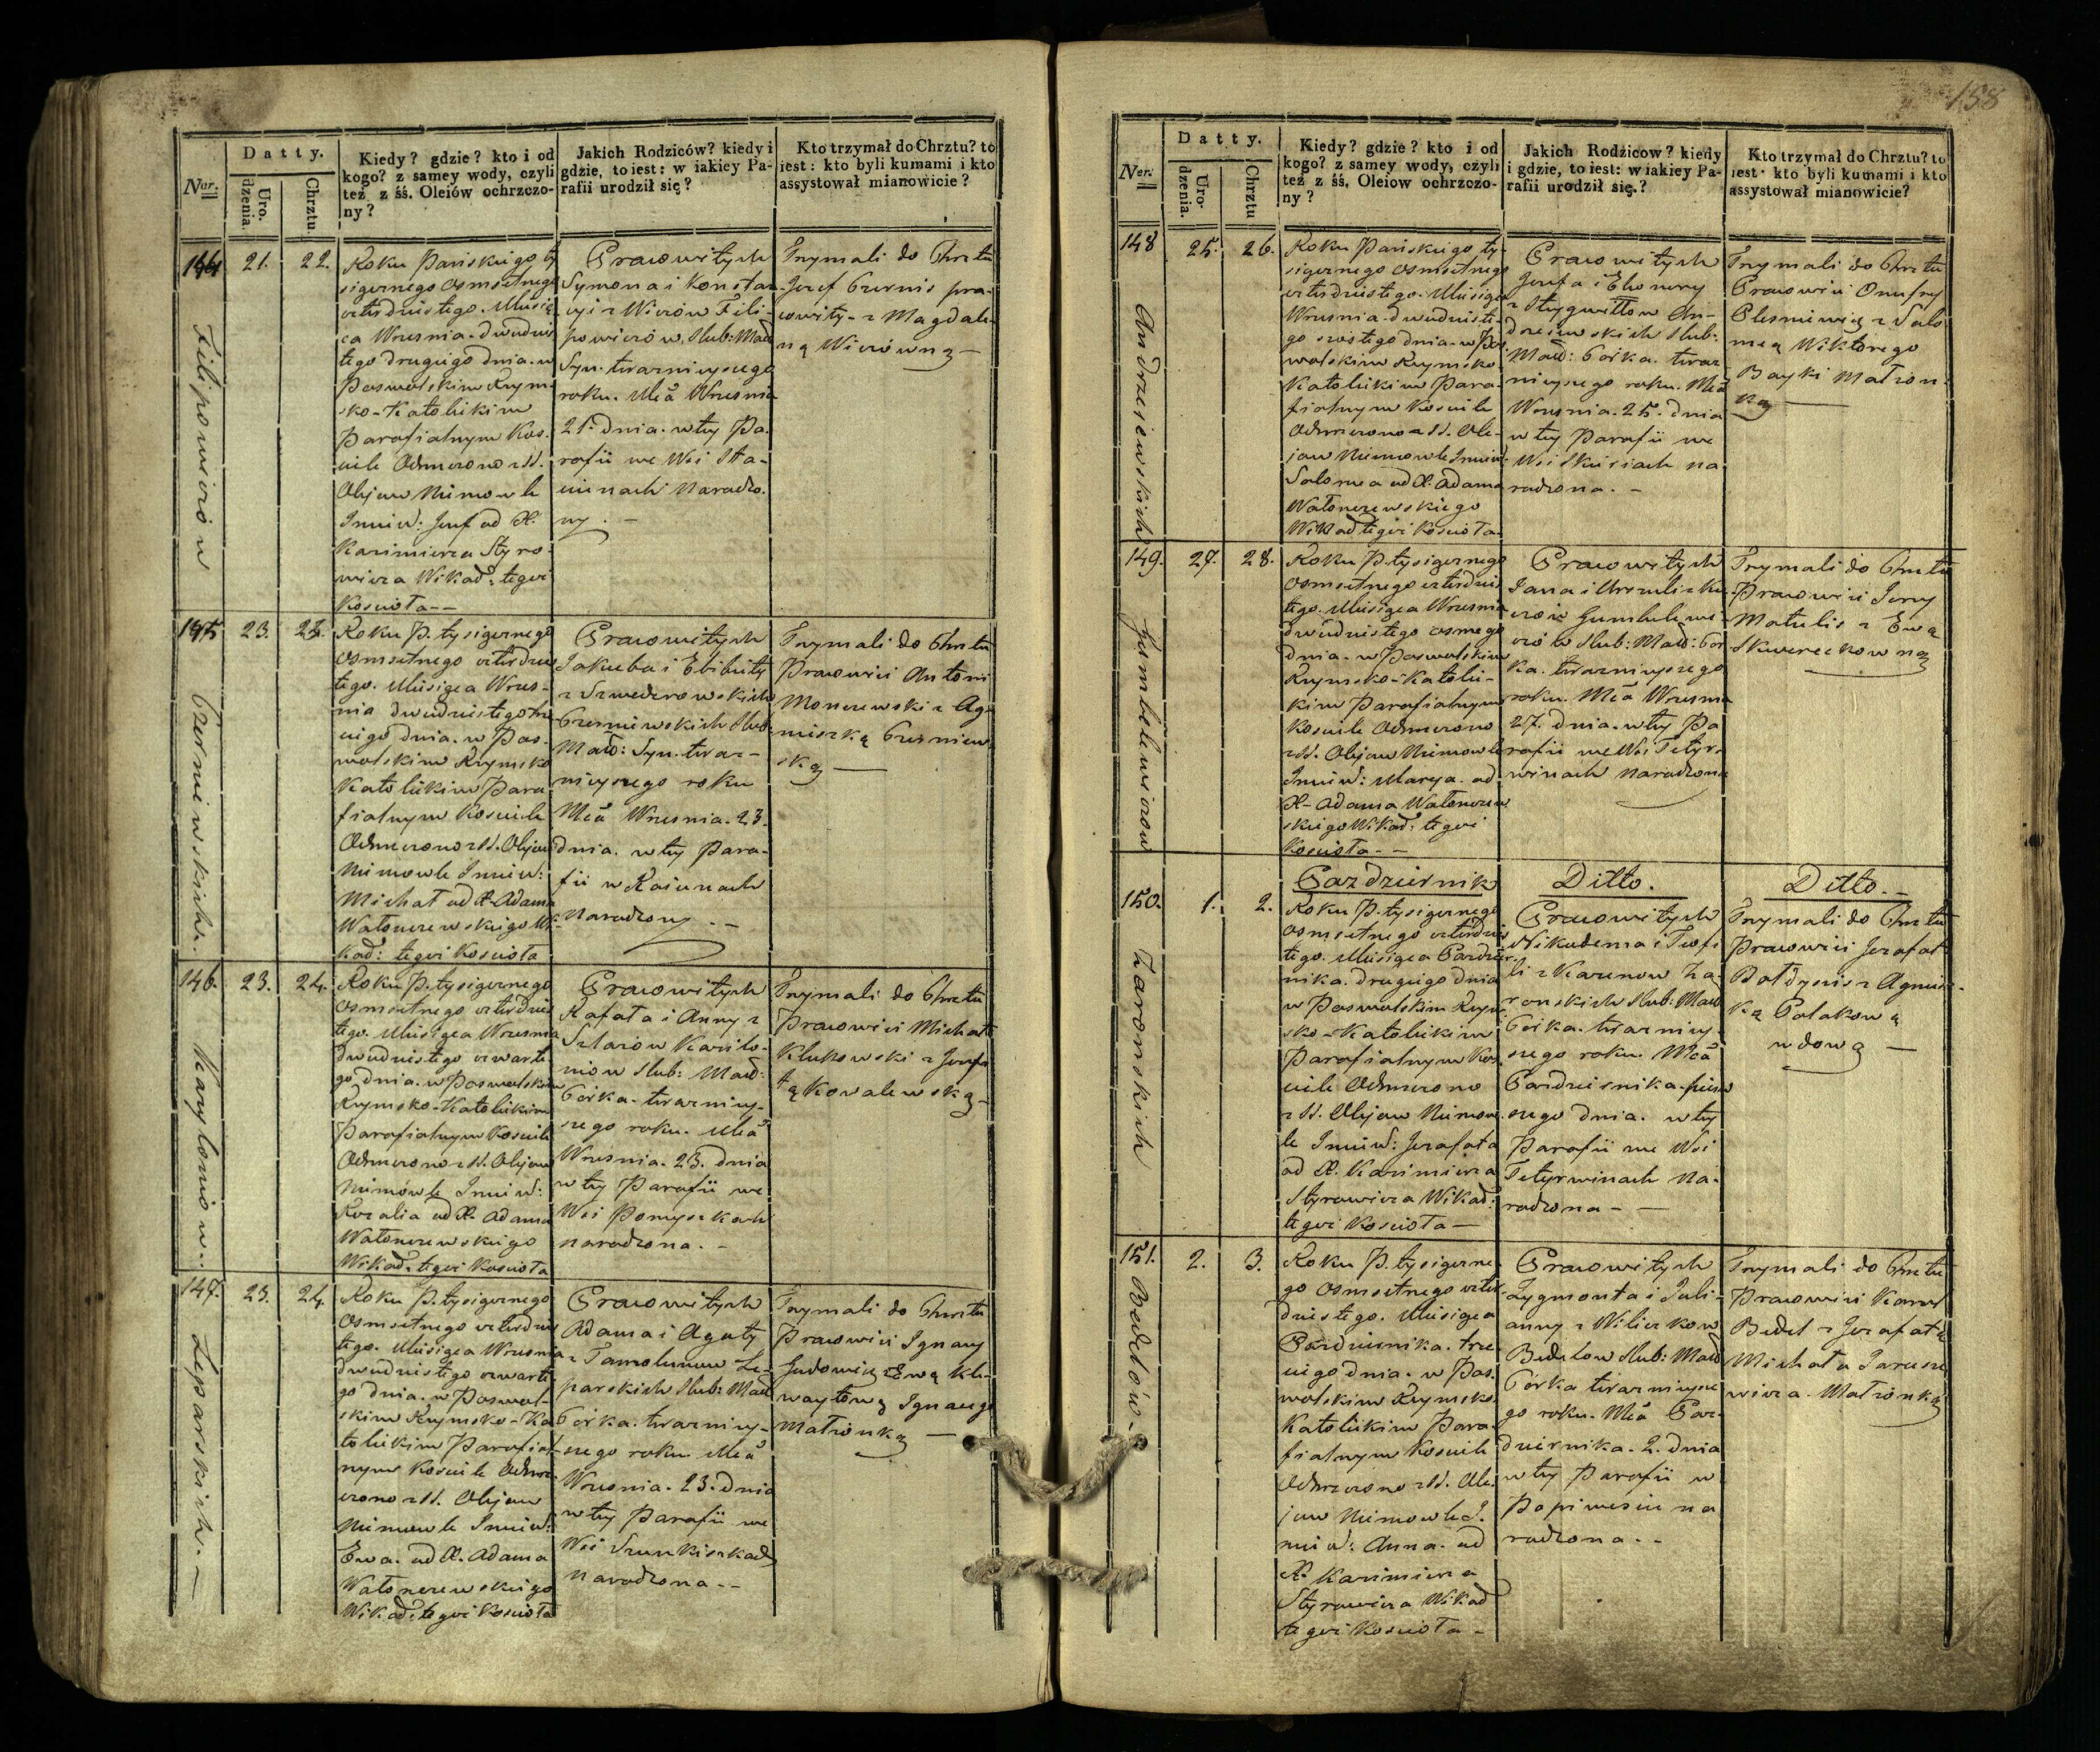 158
Ner.
Datty.
Uro-
dzenia.
Chrztu.
Kiedy? gdzie? kto i od
kogo? z samey wody, czyli
też z śś. Oleiów ochrzczo-
ny?
Jakich Rodziców? kiedy i
gdzie, to iest: w iakiey Pa-
rafii urodził się?
Kto trzymał do Chrztu? to
iest: kto byli kumami i kto
assystował mianowicie?
144
Filipowiczów
21.
22.
Roku Pańskiego ty
siącznego osmsetnego
czterdziestego. Miesią
ca Wrzesnia. dwudzies
tego drugiego dnia. w
Poswolskim Rzym-
sko-Katolickim
Parafialnym Koś-
ciele Ochrzczono z SS.
Olejow Niemowle
Imień: Jozef od X.
Kazimierza Styro-
wicza Wikad: tegoż
Kościoła--
Pracowitych
Symona i Konstan
cyi z Wiczów Fili-
powiczów Slub: Małż
Syn. teraznieyszego
roku. Mca Wrzesnia
21. dnia. w tey Pa-
rafii we Wsi Sta-
cienach Narodzo-
ny. -
Trzymali do Chrztu
Jozef Czernis pra-
cowity- z Magdale-
ną Wiczówną —
145
Czerniewskich.
23.
23.
Roku P. tysiącznego
osmsetnego czterdzies
tego. Miesiąca Wrzes-
nia dwudziestego trze
ciego dnia. w Pos-
wolskim Rzymsko
Katolickim Para
fialnym Kościele
Ochrzczono z SS. Olejow
Niemowle Imień:
Michał od X. Adama
Wałonczewskiego Wi-
kad: tegoż Kościoła
Pracowitych
Jakuba i Elżbiety
z Szwederowskich
Czerniewskich Slub:
Małż: Syn. teraz-
nieyszego roku
Mca Wrzesnia. 23.
dnia. w tey Para-
fii w Raiunach
Narodzony. -
Trzymali do Chrztu
Pracowici Antoni
Monczewski z Ag-
nieszką Czerniew
ską —
146.
Karyloniow.
23.
24.
Roku P. tysiącznego
osmsetnego czterdzies
tego. Miesiąca Wrzesnia
dwudziestego czwarte
go dnia. w Poswolskim
Rzymsko-Katolickim
Parafialnym Kościele
Ochrzczono z SS. Olejow
Niemowle Imień:
Rozalia od X. Adama
Wałonczewskiego
Wikad: tegoż Kościoła
Pracowitych
Rafała i Anny z
Szlazów Karilo-
niow Slub: Małż:
Córka. terazniey-
szego roku. Mca
Wrzesnia. 23. dnia
w tey Parafii we
Wsi Pomyszkach
narodzona. -
Trzymali do Chrztu
Pracowici Michał
Klukowski z Jozefa
tą Kowalewską-
147.
Leparskich. —
23.
24.
Roku P. tysiącznego
osmsetnego czterdzies
tego. Miesiąca Wrzesnia
dwudziestego czwarte
go dnia. w Poswol-
skim Rzymsko-Ka
tolickim Parafial-
nym Kościele Ochrz-
czono z SS. Olejow
Niemowle Imień:
Ewa. od X. Adama
Wałonczewskiego
Wikad: tegoż Kościoła
Pracowitych
Adama i Agaty
z Le-
parskich Slub: Małż
Córka. terazniey-
szego roku Mca
Wrzesnia. 23. dnia
w tey Parafii we
Wsi Szunkiszkach
Narodzona --
Trzymali do Chrztu
Pracowici Ignacy
Gudowicz z Ewą Kle-
waytową Ignacego
Małżonką —
Ner.
Datty.
Uro-
dzenia.
Chrztu
Kiedy? gdzie? kto i od
kogo? z samey wody, czyli
też z śś. Oleiow ochrzczo-
ny?
Jakich Rodzicow? kiedy
i gdzie, to iest: w iakiey Pa-
rafii urodził się.?
Kto trzymał do Chrztu? to
iest: kto byli kumami i kto
assystował mianowicie?
148
Andrzeiewskich
25.
26.
Roku Pańskiego ty-
siącznego osmsetnego
czterdziestego. Miesiąca
Wrzesnia. dwudzieste-
go szostego dnia. w Pos
wolskim Rzymsko
Katolickim Para-
fialnym Kościele
Ochrzczono z SS. Ole-
jow Niemowle Imień:
Salomea od X. Adama
Wałonczewskiego
Wikad tegoż Kościoła.
Pracowitych
Jozefa i Eleonory
z Stygwiłłow An-
drzeiewskich Slub:
Małż: Córka. teraz
nieyszego roku. Mca
Wrzesnia. 25. dnia
w tey Parafii we
Wsi Skieiach na-
rodzona. -
Trzymali do Chrztu
Pracowici Onufry
Plesniewicz z Salo
meą Wiktorego
Bayki Małżon-
ką —
149.
Gumbelewiczow
27.
28.
Roku P. tysiącznego
osmsetnego czterdzies
tego. Miesiąca Wrzesnia
dwudziestego osmego
dnia. w Poswolskim
Rzymsko-Katolic-
kim Parafialnym
Kościele Ochrzczono
z SS. Olejow Niemowle
Imień: Marya. od
X- Adama Wałonczew
skiego Wikad: tegoż
Kościoła--
Pracowitych
Jana i Urszuli z Ku
czów Gumbelewi-
czów Slub: Małż: Cor
ka. teraznieyszego
roku. Mca Wrzesnia
27. dnia. w tey Pa
rafii we Wsi Tetyr-
winach narodzona
Trzymali do Chrztu
Pracowici Jerzy
Matulis z Ewą
Skwereckowną
Pazdziernik
Ditto.
Ditto. -
150.
Zaronskich
1.
2.
Roku P. tysiącznego
osmsetnego czterdzies
tego. Miesiąca Pazdzier-
nika. drugiego dnia
w Poswolskim Rzym-
sko-Katolickim
Parafialnym Koś-
ciele Ochrzczono
z SS. Olejow Niemow-
le Imień: Jozafata
od X. Kazimierza
Styrowicza Wikad:
tegoż Kościoła —
Pracowitych
Nikodema i Teofi
li z Karenow Za-
ronskich Slub: Małż
Córka. terazniey-
szego roku. Mca
Pazdziernika. pierw
szego dnia. w tey
Parafii we Wsi
Tetyrwinach Na-
rodzona - -
Trzymali do Chrztu
Pracowici Jozafat
Bołdysis z Agniesz-
ką Polakową
wdową —
151.
Bedelów -
2.
3.
Roku P. tysiączne-
go osmsetnego czter-
dziestego. Miesiąca
Pazdziernika. trze-
ciego dnia. w Pos-
wolskim Rzymsko
Katolickim Para-
fialnym Kościele
Ochrzczono z SS. Ole-
jow Niemowle I-
mień: Anna. od
X. Kazimierza
Styrowicza Wikad
tegoż Kościoła -
Pracowitych
Zygmonta i Juli-
anny z Wilierkow
Bedelow Slub: Małż
Córka teraznieysze
go roku. Mca Paz-
dziernika. 2. dnia
w tey Parafii w
Popiwesiu na
rodzona --
Trzymali do Chrztu
Pracowici Karol
Bedel z Jozafatą
Michała Jarusze
wicza. Małżonką